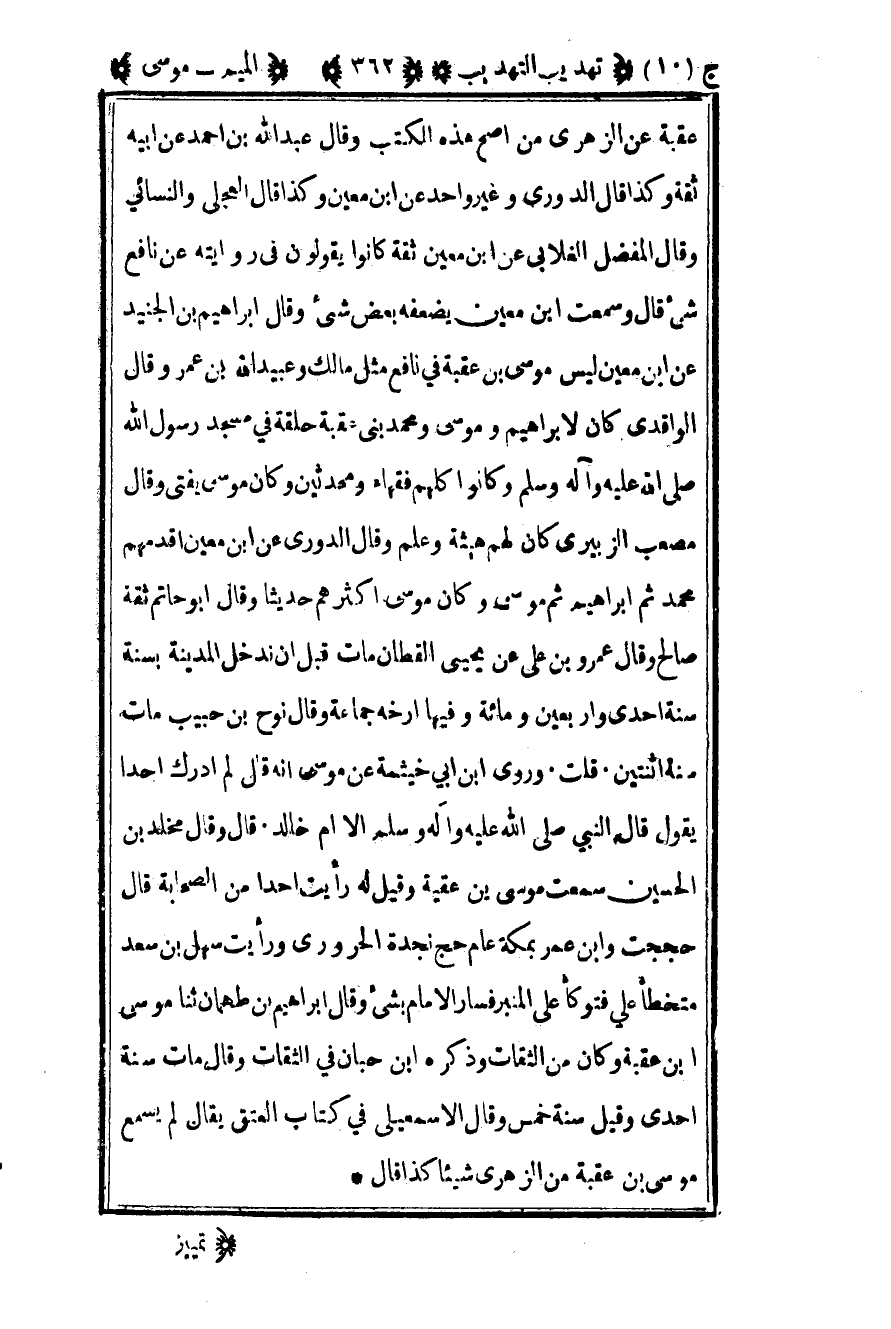 ج (١٠) ﴿ تهذيب التهذيب ﴾ ﴿ ٣٦٢ ﴾ ﴿ الميم ـ موسى ﴾
عقبة عن الزهرى من اصح هذه الكتب وقال عبدالله بن احمد عن ابيه
ثقة وكذا قال الدورى وغير واحد عن ابن معين وكذا قال العجلى والنسائي
وقال المفضل الغلابى عن ابن معين ثقة كانوا يقولون فى روايته عن نافع
شئ قال وسمعت ابن معين يضعفه بعض شئ وقال ابراهيم بن الجنيد
عن ابن معين ليس موسى بن عقبة في نافع مثل مالك وعبيد الله بن عمر وقال
الواقدى كان لابراهيم وموسى ومحمد بنى عقبة حلقة في مسجد رسول الله
صلى الله عليه وآله وسلم وكانوا كلهم فقهاء ومحدثين وكان موسى يفتى وقال
مصعب الزبيرى كان لهم هيئة وعلم وقال الدورى عن ابن معين اقدمهم
محمد ثم ابراهيم ثم موسى وكان موسى اكثرهم حديثا وقال ابو حاتم ثقة
صالح وقال عمرو بن على عن يحيى القطان مات قبل ان ندخل المدينة بسنة
سنة احدى واربعين ومائة وفيها ارخه جماعة وقال نوح بن حبيب مات
سنة اثنتين · قلت · وروى ابن ابي خيثمة عن موسى انه قال لم ادرك احدا
يقول قال النبي صلى الله عليه وآله وسلم الا ام خالد · قال وقال مخلد بن
الحسين سمعت موسى بن عقبة وقيل له رأيت احدا من الصحابة قال
حججت وابن عمر بمكة عام حج نجدة الحرورى ورأيت سهل بن سعد
متخطأ علي فتوكأ على المنبر فسار الامام بشئ وقال ابراهيم بن طهمان ثنا موسى
ابن عقبة وكان من الثقات وذكره ابن حبان في الثقات وقال مات سنة
احدى وقيل سنة خمس وقال الاسمعيلى في كتاب العتق يقال لم يسمع
موسى بن عقبة من الزهرى شيئا كذا قال •
﴿ تمييز